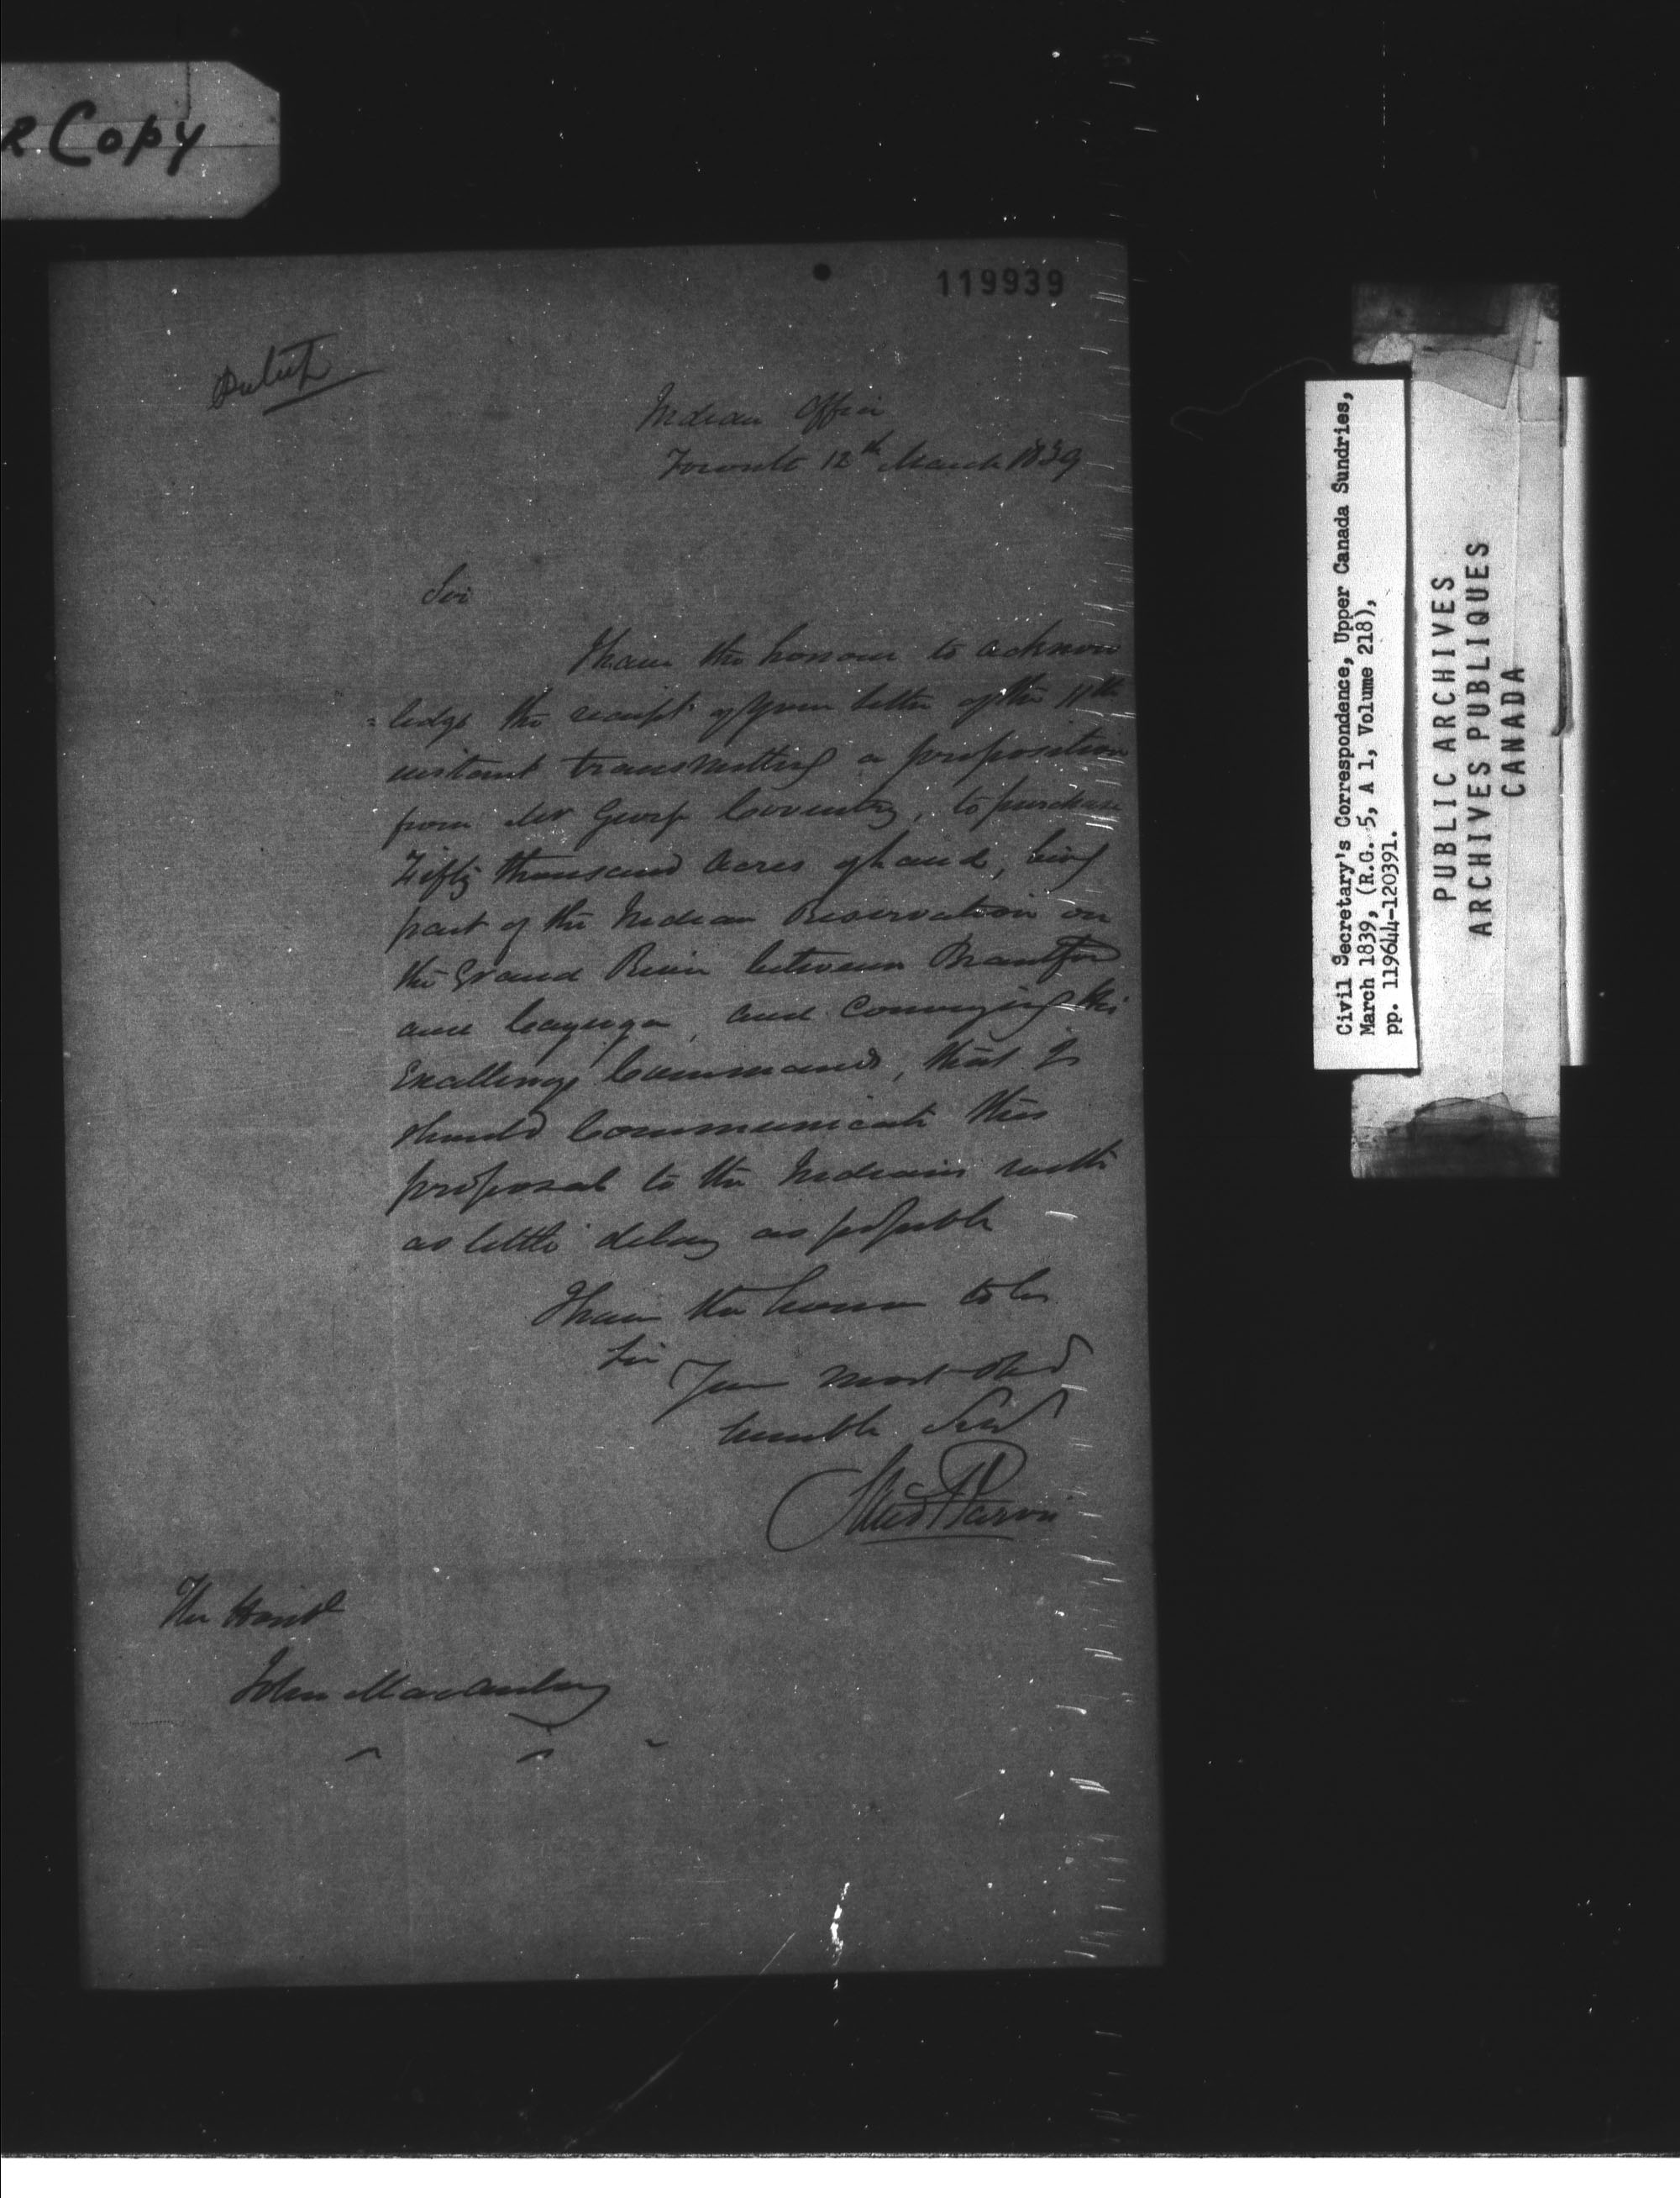 R Copy
119939
Indian Office
Toronto 12th March 1839
Sir
I have the honour to acknow
=ledge the receipt of your letter of the 11th
instant transmitting a proposition
from Mr George Coventry, to purchase
Fifty thousand acres of Land, being
part of the Indian Reservation on
the Grand River between Brantford
and Cayuga, and conveying His
Excellency's Commands, that I
should Communicate this
proposal to the Indians with
as little delay as possible
I have the honor to be
Sir
Your most obed
humble Servt
The Honble
John Macaulay
Civil Secretary's Correspondence, Upper Canada Sundries,
March 1839, (R.G. 5, A 1, Volume 218),
pp. 119644-120391.
PUBLIC ARCHIVES
ARCHIVES PUBLIQUES
CANADA